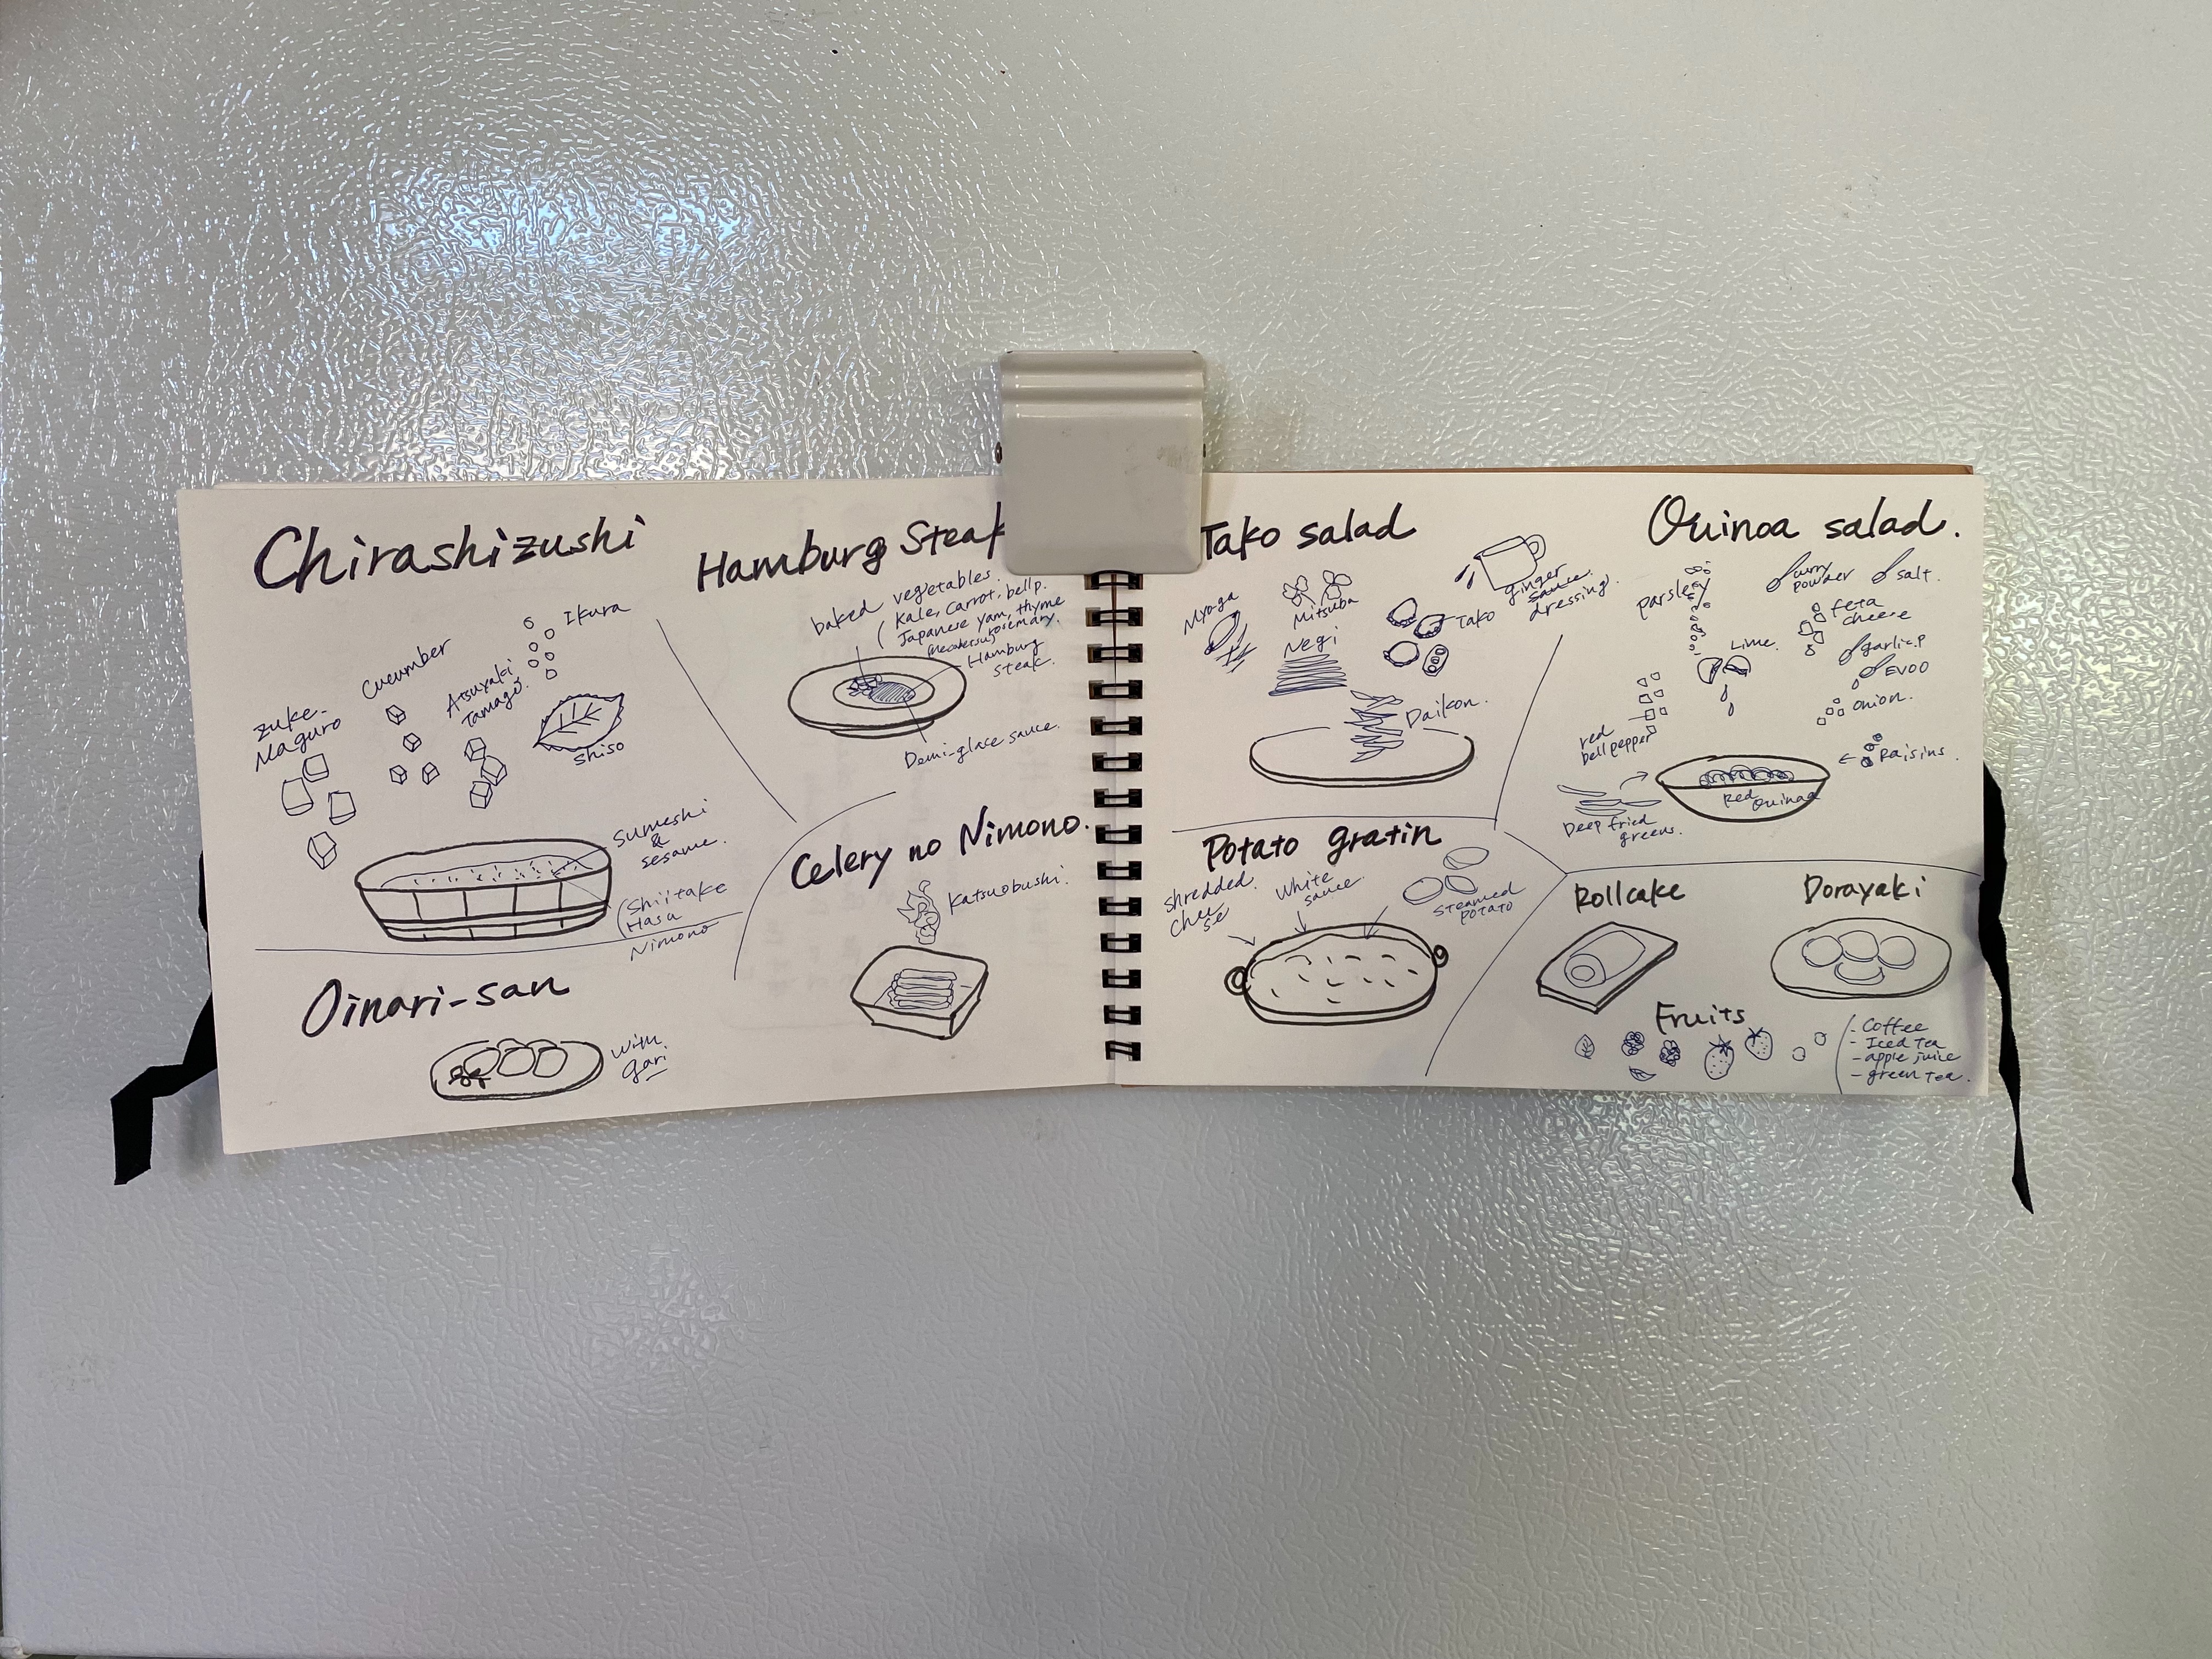 Chirashizushi
Ikura
Cucumber
Atsuyaki
Tamago
zuke-
Maguro
shiso
Sumeshi
&
sesame.
Shiitake
Hasu
Nimono
Oinari-san
with
gari
Hamburg Steak
baked vegetables
(Kale, Carrot, bellp.
Japanese yam, thyme
rosemary.
Hamburg
steak.
Demi-glace sauce.
Celery no Nimono.
Katsuobushi.
Tako salad
Myoga
Mitsuba
Negi
Tako
ginger
sauce
dressing.
Daikon.
Potato gratin
shredded
chee
se
White
sauce.
steamed
potato
Quinoa salad.
parsley
curry
powder
salt.
feta
cheese
Lime.
garlic.p
EVOO
onion.
red
bellpepper
Raisins.
Red
Quinoa
Deep fried
greens.
Rollcake
Dorayaki
Fruits
- Coffee
- Iced Tea
- apple juice
- green tea.